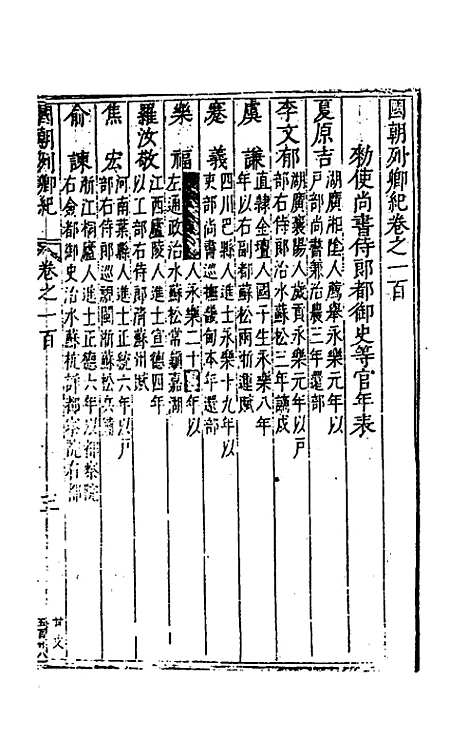 國朝列卿紀卷之一百
勅使尚書侍郎都御史等官年表
夏原吉
湖廣湘陰人薦舉永樂元年以
戶部尚書兼治農三年還部
李文郁
湖廣襄陽人歲貢永樂元年以戶
部右侍郎治水蘇松三年謫戍
虞謙
直隸金壇人國子生永樂八年
年以右副都御史蘇松兩浙運賦
蹇義
四川巴縣人進士永樂十九年以
吏部尚書巡撫畿甸本年還部
樂福
人永樂二十 年以
左通政治水蘇松常鎮嘉湖
羅汝敬
江西廬陵人進士宣德四年
以工部右侍郎濟蘇州賦
焦宏
河南葉縣人進士正統六年以戶
部右侍郎巡視閩浙蘇松兵備
俞諫
浙江桐廬人進士正德六年以都察院
右僉都御史治水蘇杭詳都察院右都
國朝列卿紀
卷之一百